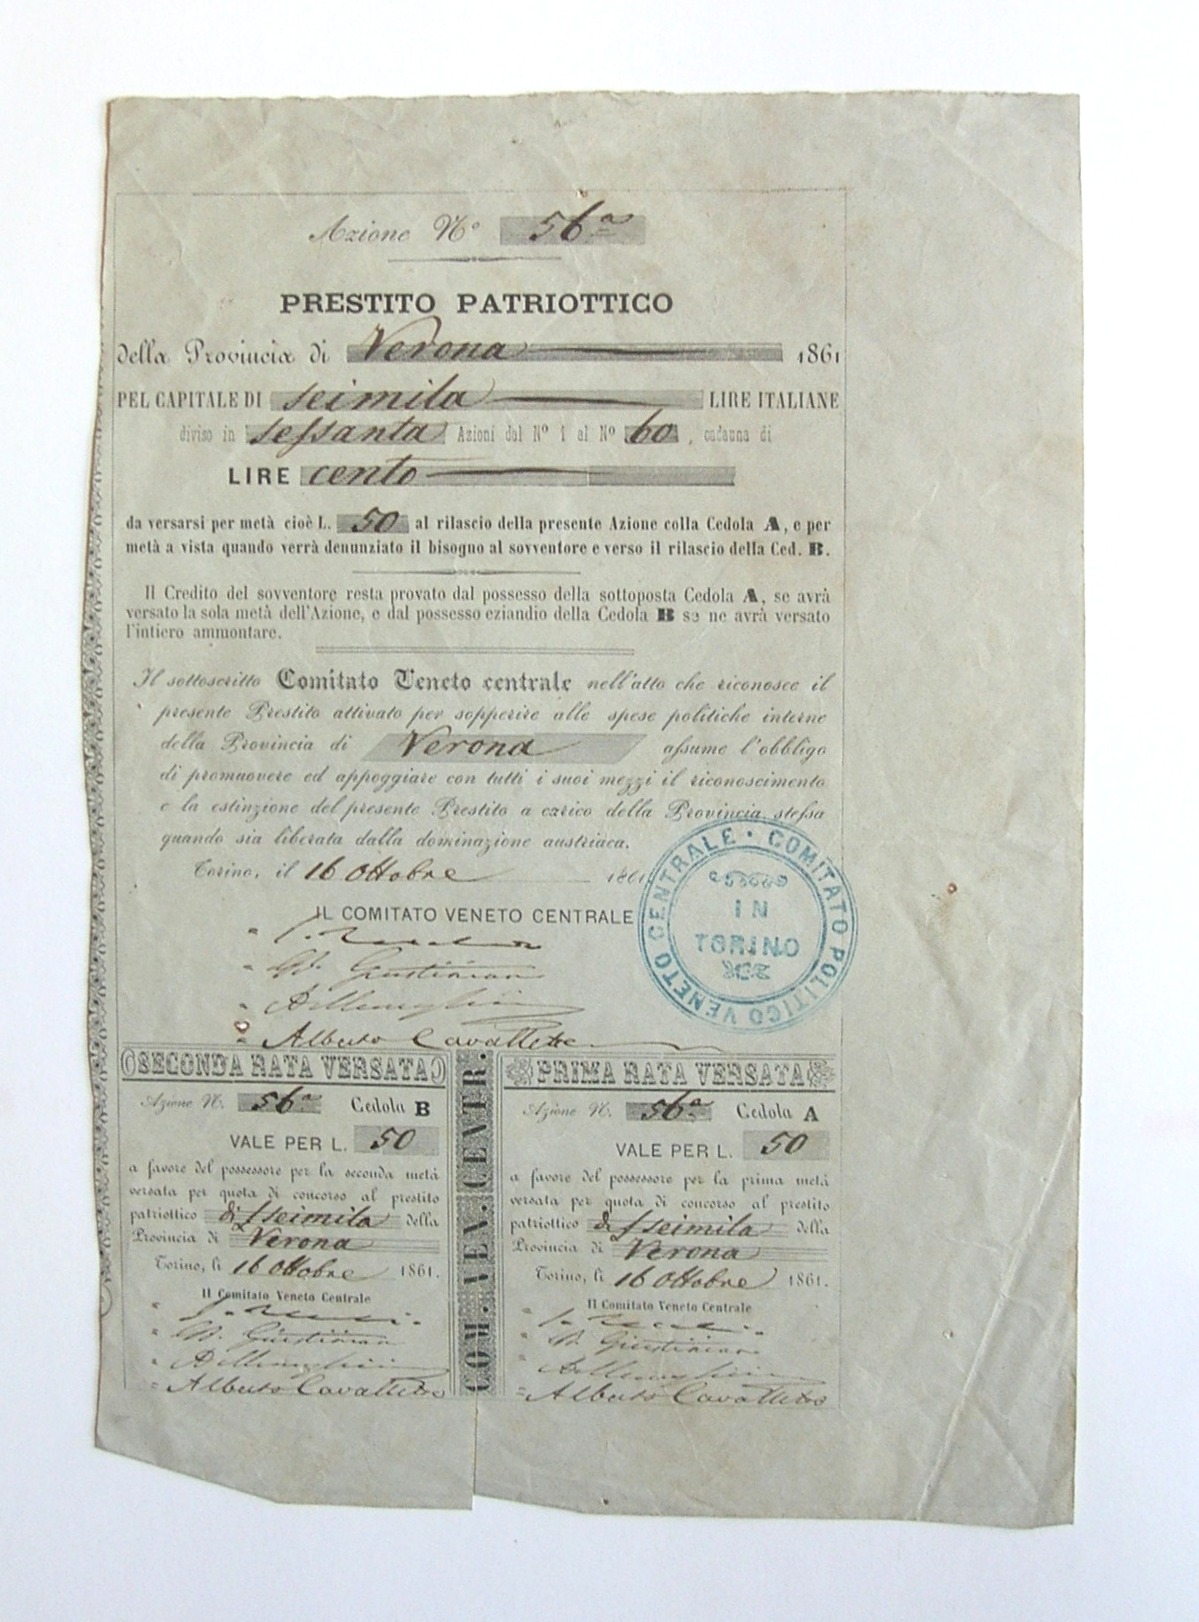 Azione Nº 56ª
PRESTITO PATRIOTTICO
della Provincia di Verona 1861
PEL CAPITALE DI seimila LIRE ITALIANE
diviso in sessanta Azioni dal Nº 1 al Nº 60, cadauna di
LIRE cento
da versarsi per metà cioè L. 50 al rilascio della presente Azione colla Cedola A, e per
metà a vista quando verrà denunziato il bisogno al sovventore e verso il rilascio della Ced. B.
Il Credito del sovventore resta provato dal possesso della sottoposta Cedola A, se avrà
versato la sola metà dell'Azione, e dal possesso eziandio della Cedola B se ne avrà versato
l'intiero ammontare.
Il sottoscritto Comitato Veneto centrale nell'atto che riconosce il
presente Prestito attivato per sopperire alle spese politiche interne
della Provincia di Verona assume l'obbligo
di promuovere ed appoggiare con tutti i suoi mezzi il riconoscimento
e la estinzione del presente Prestito a carico della Provincia stessa
quando sia liberata dalla dominazione austriaca.
Torino, il 16 Ottobre 1861
IL COMITATO VENETO CENTRALE
COMITATO POLITICO VENETO CENTRALE
IN
TORINO
Giustinian
Alberto Cavalletto
SECONDA RATA VERSATA
Azione N. 56ª Cedola B
VALE PER L. 50
a favore del possessore per la seconda metà
versata per quota di concorso al prestito
patriottico di £ seimila della
Provincia di Verona
Torino, li 16 Ottobre 1861.
Il Comitato Veneto Centrale
Giustinian
Alberto Cavalletto
COM. VEN. CENTR.
PRIMA RATA VERSATA
Azione N. 56ª Cedola A
VALE PER L. 50
a favore del possessore per la prima metà
versata per quota di concorso al prestito
patriottico di £ seimila della
Provincia di Verona
Torino, li 16 Ottobre 1861.
Il Comitato Veneto Centrale
Giustinian
Alberto Cavalletto